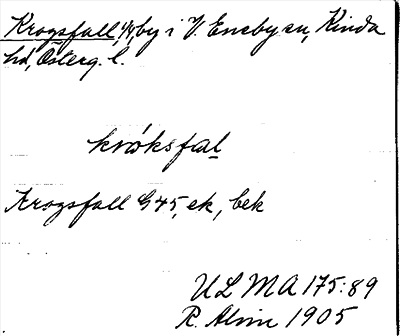 Krogsfall, 1/4, by i V. Eneby sn, Kinda
hd, Österg. l.
kroksfal
Krogsfall G45, ek, bek
ULMA 175:89
R. Alvin 1905